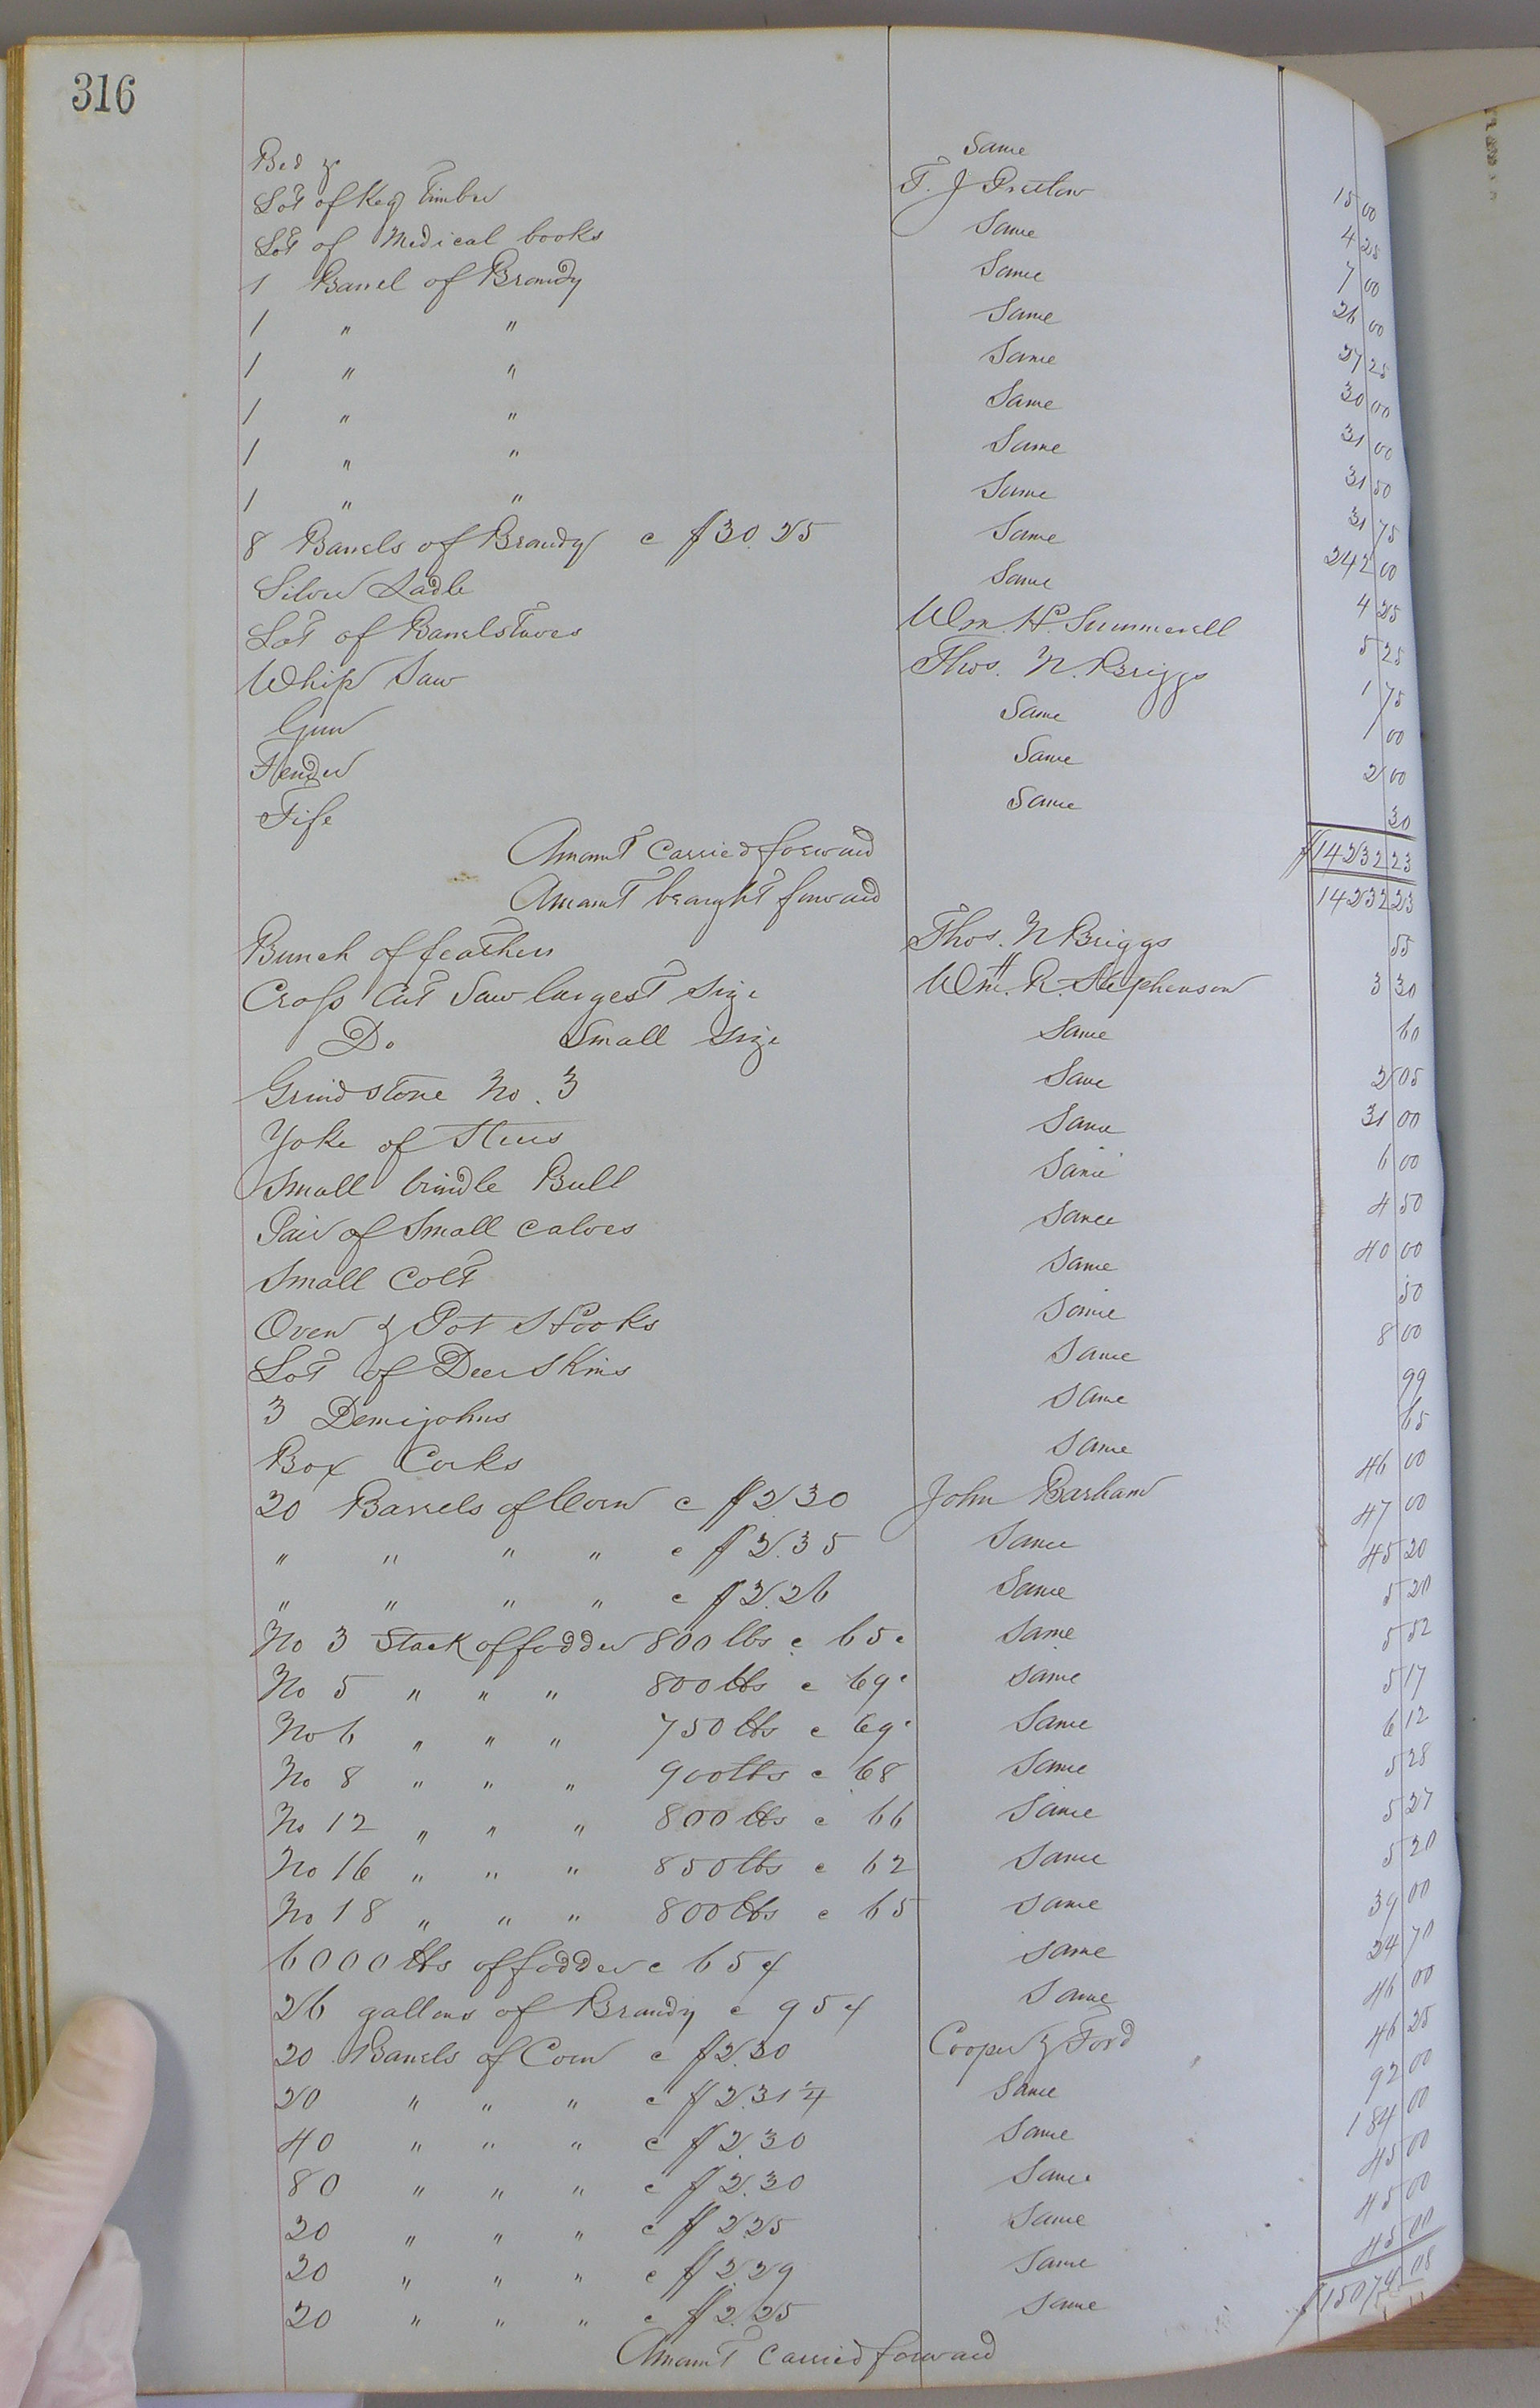 316
Bed &c Same 15 00
Lot of Keg Timber T. J Pretlow 4 25
Lot of Medical books Same 7 00
1 Barrel of Brandy Same 26 00
1 " " Same 27 25
1 " " Same 30 00
1 " " Same 31 00
1 " " Same 31 50
1 " " Same 31 75
8 Barrels of Brandy @ $30.25 Same 242 00
Silver Ladle Same 4 25
Lot of Barrelstaves Wm. H. Summerell 5 25
Whip Saw Thos. N. Briggs 1 75
Gun Same 1 00
Fender Same 2 00
Fife Same 30
Amount Carried forward $14232 23
Amount brought forward 14232 23
Bunch of feathers Thos. N Briggs 55
Cross Cut Saw largest size Wm. R. Stephenson 3 30
Do Small size Same 60
Grindstone No. 3 Same 2 05
Yoke of Steers Same 31 00
Small brindle Bull Same 6 00
Pair of Small calves Same 4 50
Small Colt Same 40 00
Oven & Pot Hooks Same 50
Lot of Deer Skins Same 8 00
3 Demijohns Same 99
Box Corks Same 65
20 Barrels of Corn @ $2.30 John Barham 46 00
" " " " @ $2.35 Same 47 00
" " " " @ $2.26 Same 45 20
No 3 Stack of fodder 800 lbs @ 65c Same 5 20
No 5 " " " 800 lbs @ 69c Same 5 52
No 6 " " " 750 lbs @ 69c Same 5 17
No 8 " " " 900 lbs @ 68 Same 6 12
No 12 " " " 800 lbs @ 66 Same 5 28
No 16 " " " 850 lbs @ 62 Same 5 27
No 18 " " " 800 lbs @ 65 Same 5 20
6000 lbs of fodder @ 65¢ Same 39 00
26 gallons of Brandy @ 95¢ Same 24 70
20 Barrels of Corn @ $2.30 Cooper & Ford 46 00
20 " " " @ $2.31¼ Same 46 25
40 " " " @ $2.30 Same 92 00
80 " " " @ $2.30 Same 184 00
20 " " " @ $2.25 Same 45 00
20 " " " @ $2.29 Same 45 00
20 " " " @ $2.25 Same 45 00
Amount Carried forward $15074 08